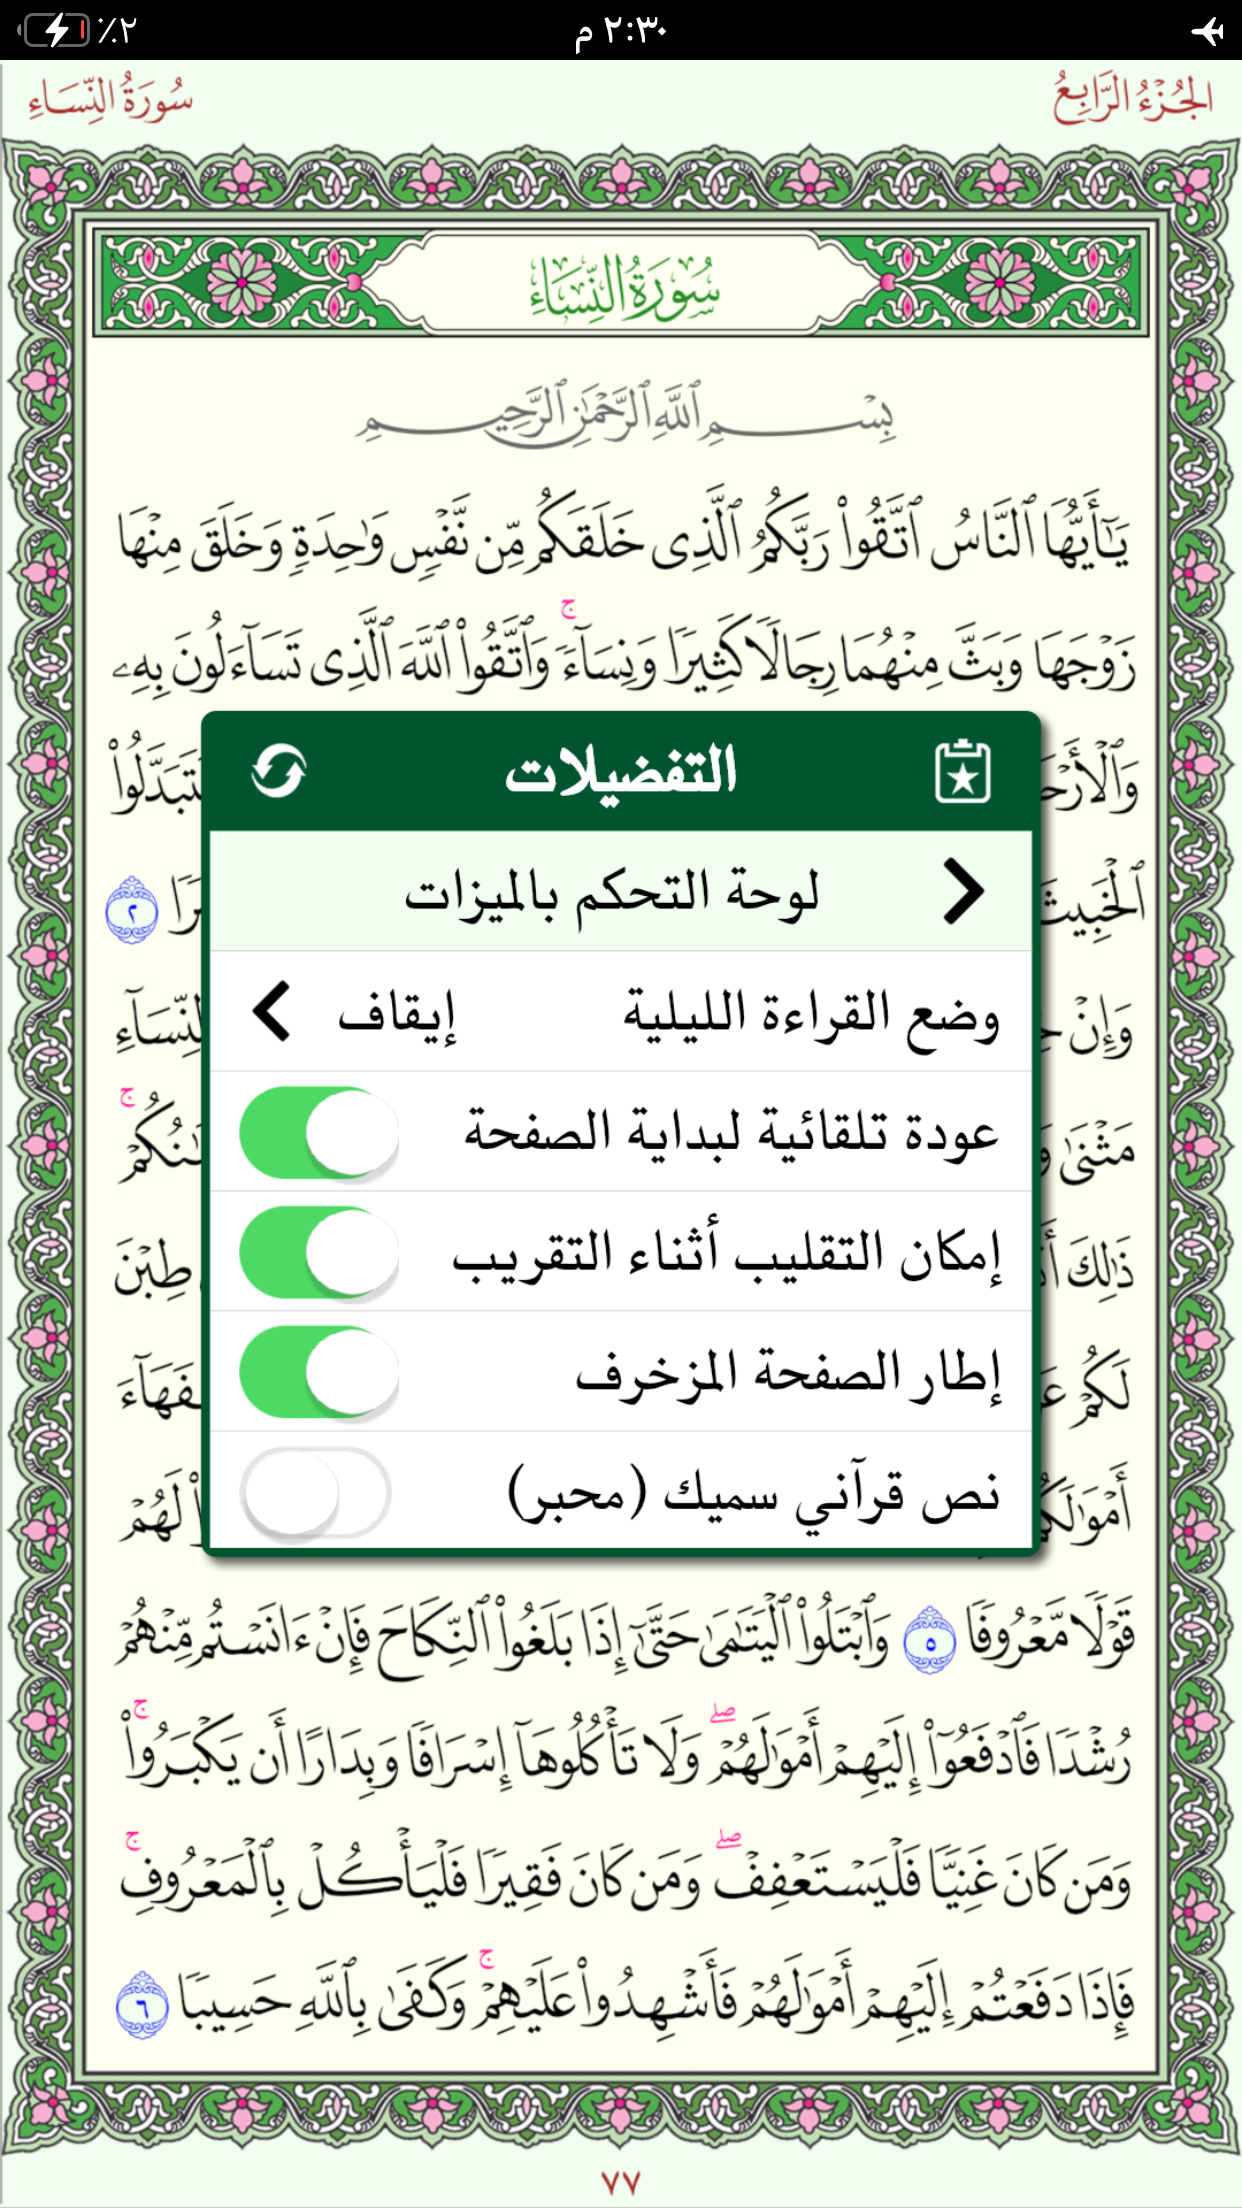 ٪٢
٢:٣٠ م
الجُزْءُ الرَّابِعُ
سُورَةُ النِّسَاءِ
سُورَةُ النِّسَاءِ
بِسْمِ ٱللَّهِ ٱلرَّحْمَٰنِ ٱلرَّحِيمِ
يَٰٓأَيُّهَا ٱلنَّاسُ ٱتَّقُوا۟ رَبَّكُمُ ٱلَّذِى خَلَقَكُم مِّن نَّفْسٍ وَٰحِدَةٍ وَخَلَقَ مِنْهَا
زَوْجَهَا وَبَثَّ مِنْهُمَا رِجَالًا كَثِيرًا وَنِسَآءً ۚ وَٱتَّقُوا۟ ٱللَّهَ ٱلَّذِى تَسَآءَلُونَ بِهِۦ
التفضيلات
لوحة التحكم بالميزات
وضع القراءة الليلية إيقاف
عودة تلقائية لبداية الصفحة
إمكان التقليب أثناء التقريب
إطار الصفحة المزخرف
نص قرآني سميك (محبر)
٢
وَإِنْ
ٱلنِّسَآءِ
مَثْنَىٰ
ذَٰلِكَ
طِبْنَ
لَكُمْ
لَهُمْ
قَوْلًا مَّعْرُوفًا ٥ وَٱبْتَلُوا۟ ٱلْيَتَٰمَىٰ حَتَّىٰٓ إِذَا بَلَغُوا۟ ٱلنِّكَاحَ فَإِنْ ءَانَسْتُم مِّنْهُمْ
رُشْدًا فَٱدْفَعُوٓا۟ إِلَيْهِمْ أَمْوَٰلَهُمْ ۖ وَلَا تَأْكُلُوهَآ إِسْرَافًا وَبِدَارًا أَن يَكْبَرُوا۟ ۚ
وَمَن كَانَ غَنِيًّا فَلْيَسْتَعْفِفْ ۖ وَمَن كَانَ فَقِيرًا فَلْيَأْكُلْ بِٱلْمَعْرُوفِ ۚ
فَإِذَا دَفَعْتُمْ إِلَيْهِمْ أَمْوَٰلَهُمْ فَأَشْهِدُوا۟ عَلَيْهِمْ ۚ وَكَفَىٰ بِٱللَّهِ حَسِيبًا ٦
٧٧